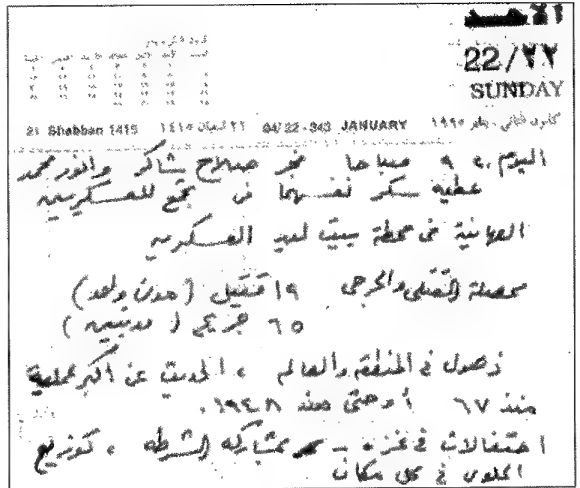 الأحد
22/٢٢
SUNDAY
21 Shabban 1415 ٢١ شعبان ١٤١٥ 04/22-343 JANUARY كانون الثاني - يناير ١٩٩٥
اليوم ، ٩ صباحا فجر صلاح شاكر وانور محمد
عطيه سكر نفسهما في تجمع للعسكريين
الصهاينة في محطة بيت ليد العسكريه
محصلة القتلى والجرحى ١٩ قتيل (مدن واحد)
٦٥ جريح ( مدنيين )
ذهول في المنطقه والعالم ، الحديث عن اكبر عملية
منذ ٦٧ أو حتى منذ ١٩٤٨.
احتفالات في غزه - بمشاركه الشرطه ، توزيع
الحلوى في كل مكان